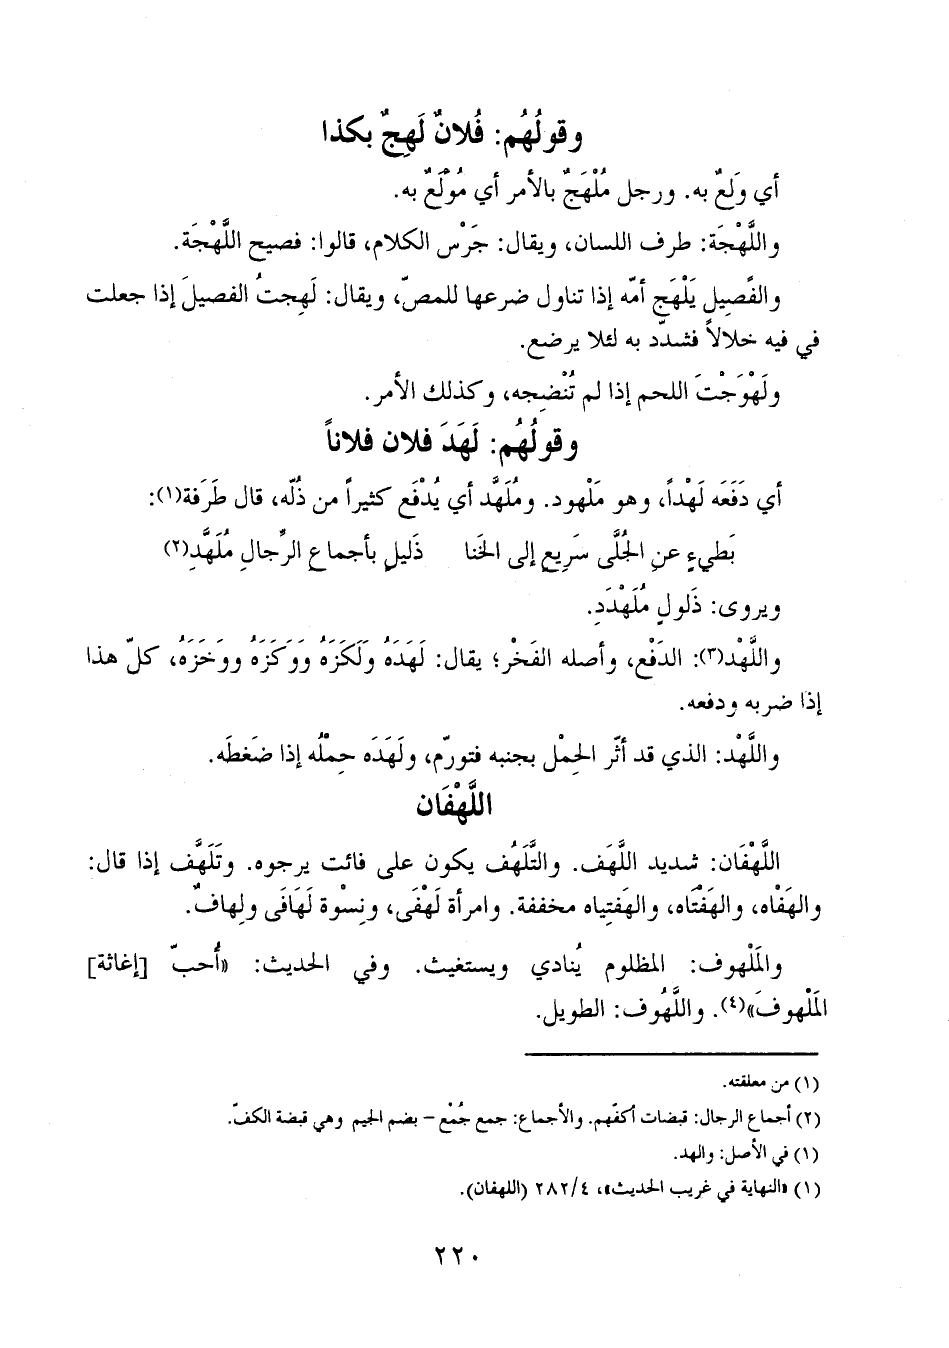 وقولُهُم: فُلانٌ لَهِجٌ بكذا
أي وَلَعٌ به. ورجل مُلْهَجٌ بالأمر أي مُوْلَعٌ به.
واللَّهْجَة: طرف اللسان، ويقال: جَرْس الكلام، قالوا: فصيح اللَّهْجَة.
والفَصِيل يَلْهَج أمّه إذا تناول ضرعها للمصّ، ويقال: لَهِجتُ الفصيلَ إذا جعلت
في فيه خلالاً فشدّد به لئلا يرضع.
ولَهْوَجْتَ اللحم إذا لم تُنْضِجه، وكذلك الأمر.
وقولُهُم: لَهَدَ فلان فلاناً
أي دَفَعَه لَهْداً، وهو مَلْهود. ومُلَهَّد أي يُدْفَع كثيراً من ذُلّه، قال طَرَفة(١):
بَطيءٍ عنِ الجُلَّى سَرِيعٍ إلى الخَنا ذَليلٍ بأجماعِ الرِّجالِ مُلَهَّدِ(٢)
ويروى: ذَلولٍ مُلَهْدَدِ.
واللَّهْد(٣): الدَفْع، وأصله الفَخْر؛ يقال: لَهَدَهُ ولَكَزَهُ ووَكَزَهُ ووَخَزَهُ، كلّ هذا
إذا ضربه ودفعه.
واللَّهْد: الذي قد أثّر الحِمْل بجنبه فتورّم، ولَهَدَه حِمْلُه إذا ضَغطَه.
اللَّهْفَان
اللَّهْفَان: شديد اللَّهَف. والتَّلَهُف يكون على فائت يرجوه. وتَلَهَّف إذا قال:
والهَفْاه، والهَفْتَاه، والهَفتِياه مخففة. وامرأة لَهْفَى، ونِسْوة لَهَافَى ولِهافٌ.
والمَلْهوف: المظلوم يُنادي ويستغيث. وفي الحديث: «أُحبّ [إغاثة]
المَلْهوفَ»(٤). واللَّهُوف: الطويل.
(١) من معلقته.
(٢) أجماع الرجال: قبضات أكفّهم. والأجماع: جمع جُمْع – بضم الجيم وهي قبضة الكفّ.
(١) في الأصل: والهد.
(١) «النهاية في غريب الحديث»، ٢٨٢/٤ (اللهفان).
٢٢٠